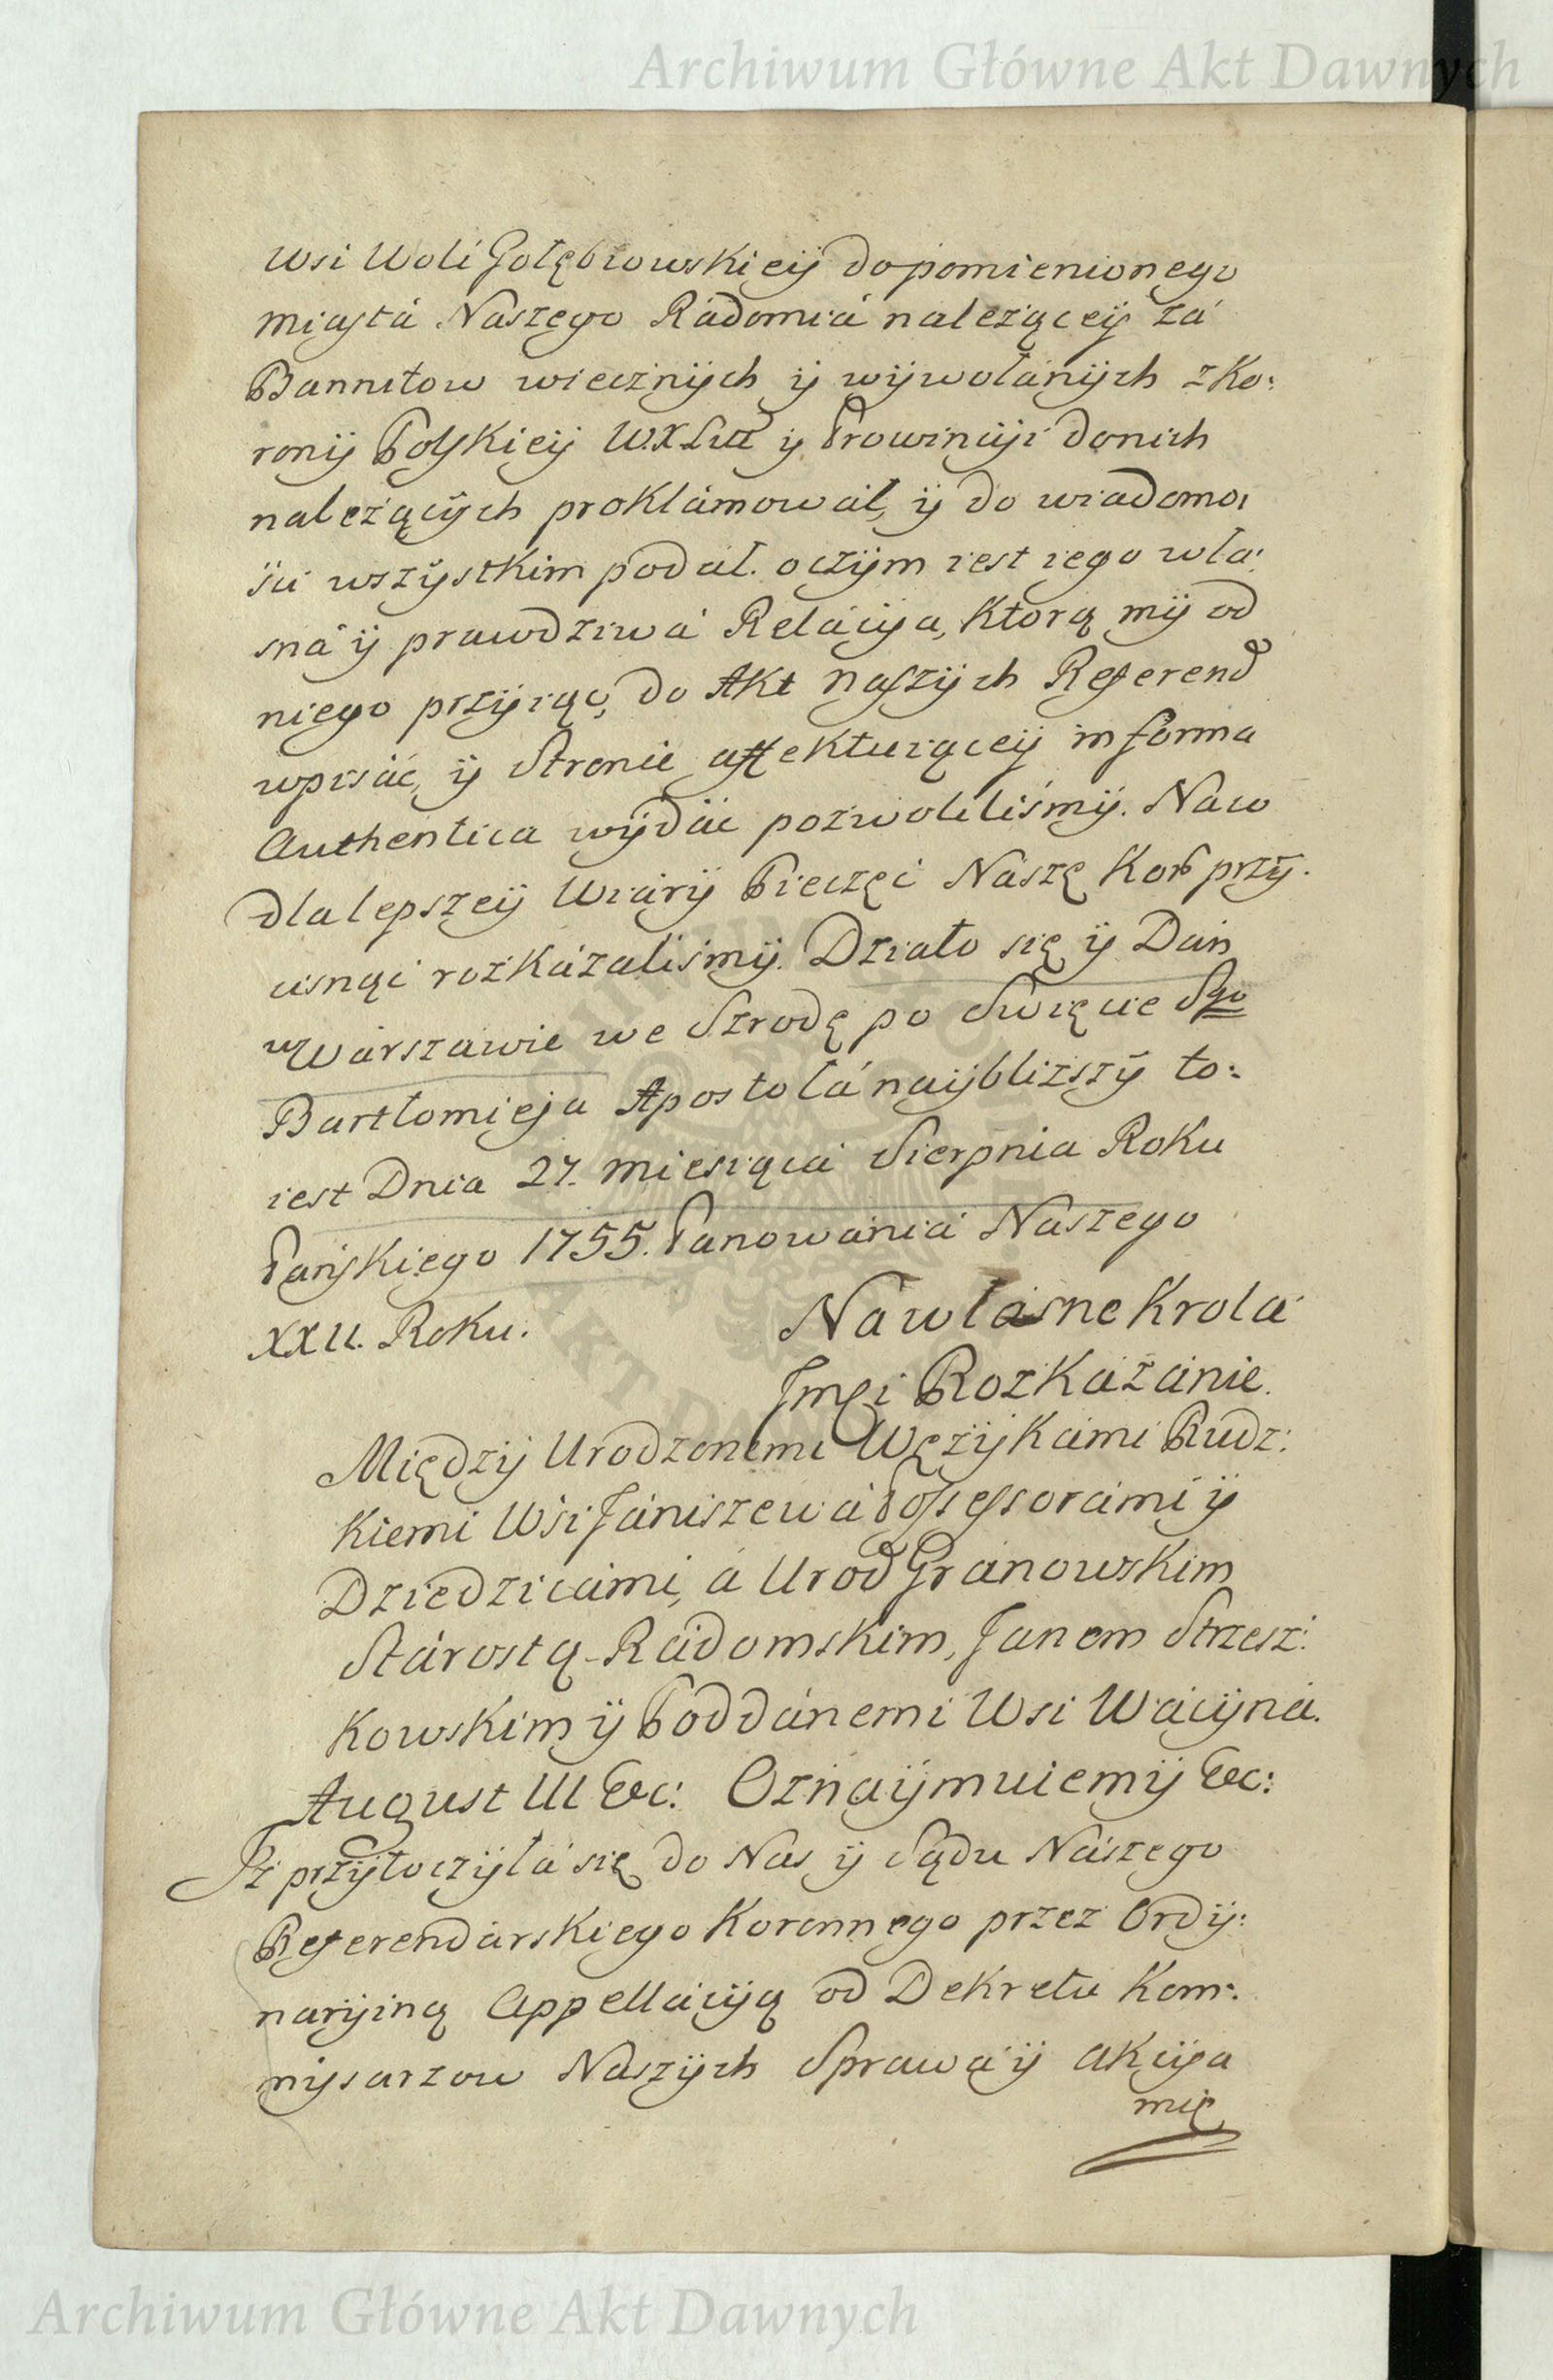 Archiwum Główne Akt Dawnych
wsi Woli Gołębiowskieÿ do pomienionego
miasta Naszego Rádomiá należąceÿ zá
Bannitow wiecznÿch ÿ wÿwołánÿch z Ko:
ronÿ Polskieÿ W.X.Litt ÿ Prowincÿi do nich
należącÿch proklámowáł, ÿ do wiadomo:
ści wszÿstkim podał. o czÿm iest iego wła:
sná ÿ prawdziwá Relácÿa, ktorą mÿ od
niego przÿiąć, do Akt Naszÿch Referend
wpisáć, ÿ Stronie affektuiąceÿ in forma
Authentica wÿdáć pozwoliliśmÿ. Na co
dla lepszeÿ Wiárÿ Pieczęć Nászę Kor przÿ:
cisnąć rozkázaliśmÿ. Działo się ÿ Dan
w Wárszawie we Szrodę po Swięcie Sgo
Bartłomieja Apostołá naÿbliższÿ to:
iest Dnia 27. Miesiącá Sierpnia Roku
Pańskiego 1755. Panowániá Naszego
XXII. Roku.
Na własne Krolá
Jmci Rozkazánie.
Międzÿ Urodzonemi Węzÿkámi Rudz:
kiemi Wsi Jániszewá Possessorámi ÿ
Dziedzicámi, á Urod Gránowskim
Stárostą Rádomskim, Janem Strzesz:
kowskim ÿ Poddánemi Wsi Wácÿná.
August III &c: Oznaÿmuiemÿ &c:
Iż przÿtoczÿłá się do Nas ÿ Sądu Nászego
Referendárskiego Koronnego przez Ordÿ:
narÿiną Appellácÿą od Dekretu Kom:
mÿsarzow Naszÿch Sprawá ÿ Akcÿa
mię
Archiwum Główne Akt Dawnych